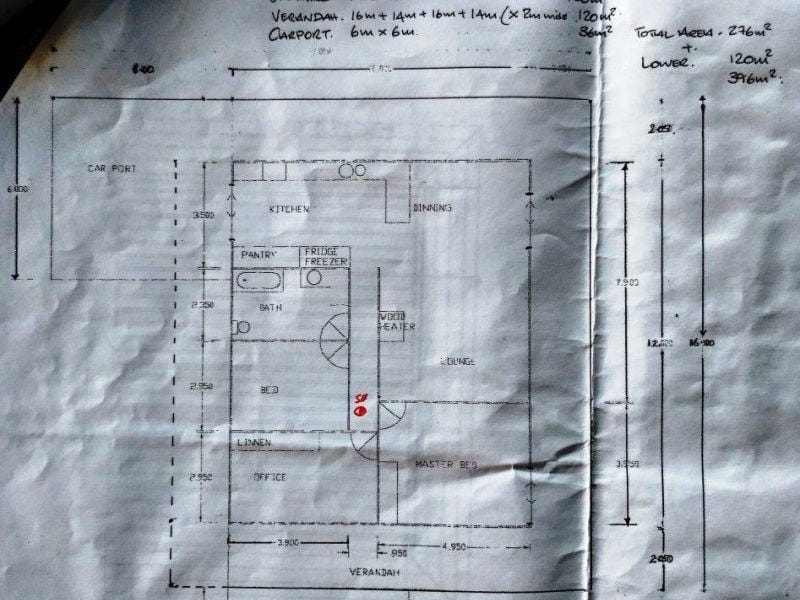 VERANDAH. 16m + 14m + 16m + 14m (x 2m wide 120m²
CARPORT. 6m x 6m. 36m²
TOTAL AREA - 276m²
+
LOWER. 120m²
396m²
6.000
CAR PORT
3.500
KITCHEN
DINNING
PANTRY
FRIDGE
FREEZER
2.350
BATH
WOOD
HEATER
LOUNGE
2.950
BED
LINNEN
2.950
OFFICE
MASTER BED
3.900
.950
4.950
VERANDAH
2.050
7.900
12.000
16.100
2.050